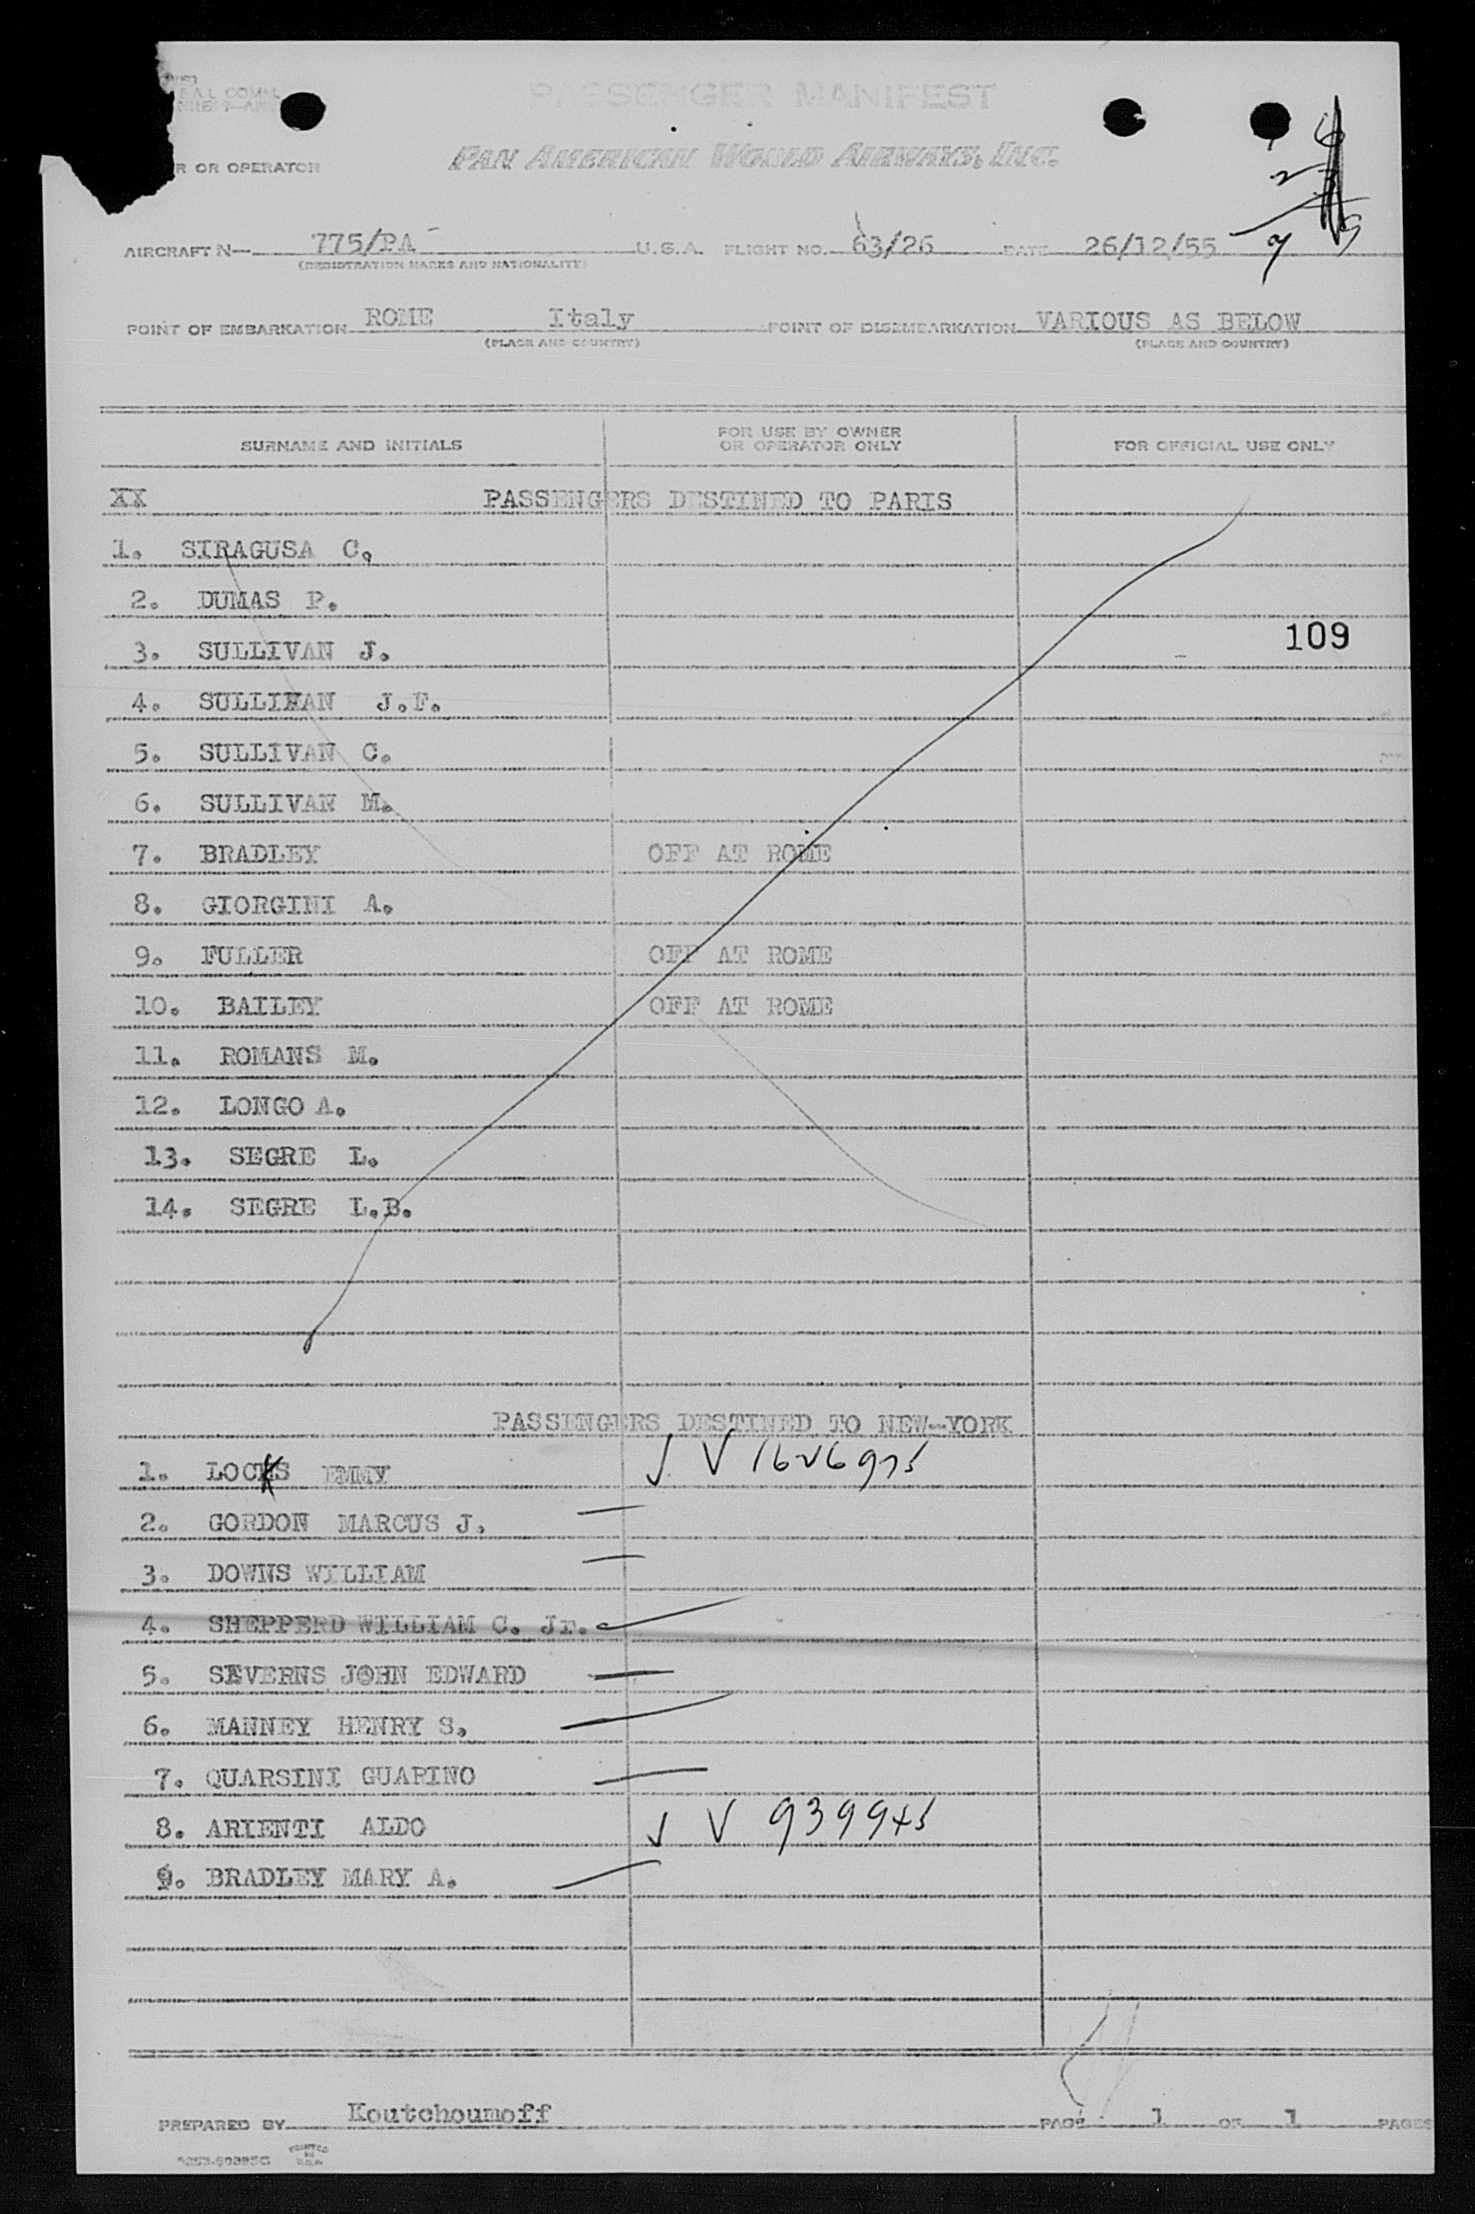 PASSENGER MANIFEST
R OR OPERATOR PAN AMERICAN WORLD AIRWAYS, INC.
AIRCRAFT N— 775/PA U.S.A. FLIGHT NO. 63/26 DATE 26/12/55
(REGISTRATION MARKS AND NATIONALITY)
POINT OF EMBARKATION ROME Italy POINT OF DISEMBARKATION VARIOUS AS BELOW
(PLACE AND COUNTRY) (PLACE AND COUNTRY)
SURNAME AND INITIALS FOR USE BY OWNER OR OPERATOR ONLY FOR OFFICIAL USE ONLY
XX PASSENGERS DESTINED TO PARIS
1. SIRAGUSA C.
2. DUMAS P.
109
3. SULLIVAN J.
4. SULLIVAN J.F.
5. SULLIVAN C.
6. SULLIVAN M.
7. BRADLEY OFF AT ROME
8. GIORGINI A.
9. FULLER OFF AT ROME
10. BAILEY OFF AT ROME
11. ROMANS M.
12. LONGO A.
13. SEGRE L.
14. SEGRE L.B.
PASSENGERS DESTINED TO NEW-YORK
1. LOCKS EMMY V 1626975
2. GORDON MARCUS J.
3. DOWNS WILLIAM
4. SHEPPERD WILLIAM C. Jr.
5. SEVERNS JOHN EDWARD
6. MANNEY HENRY S.
7. QUARSINI GUARINO
8. ARIENTI ALDO V 939945
9. BRADLEY MARY A.
PREPARED BY Koutchoumoff PAGE 1 OF 1 PAGES
PRINTED IN U.S.A.